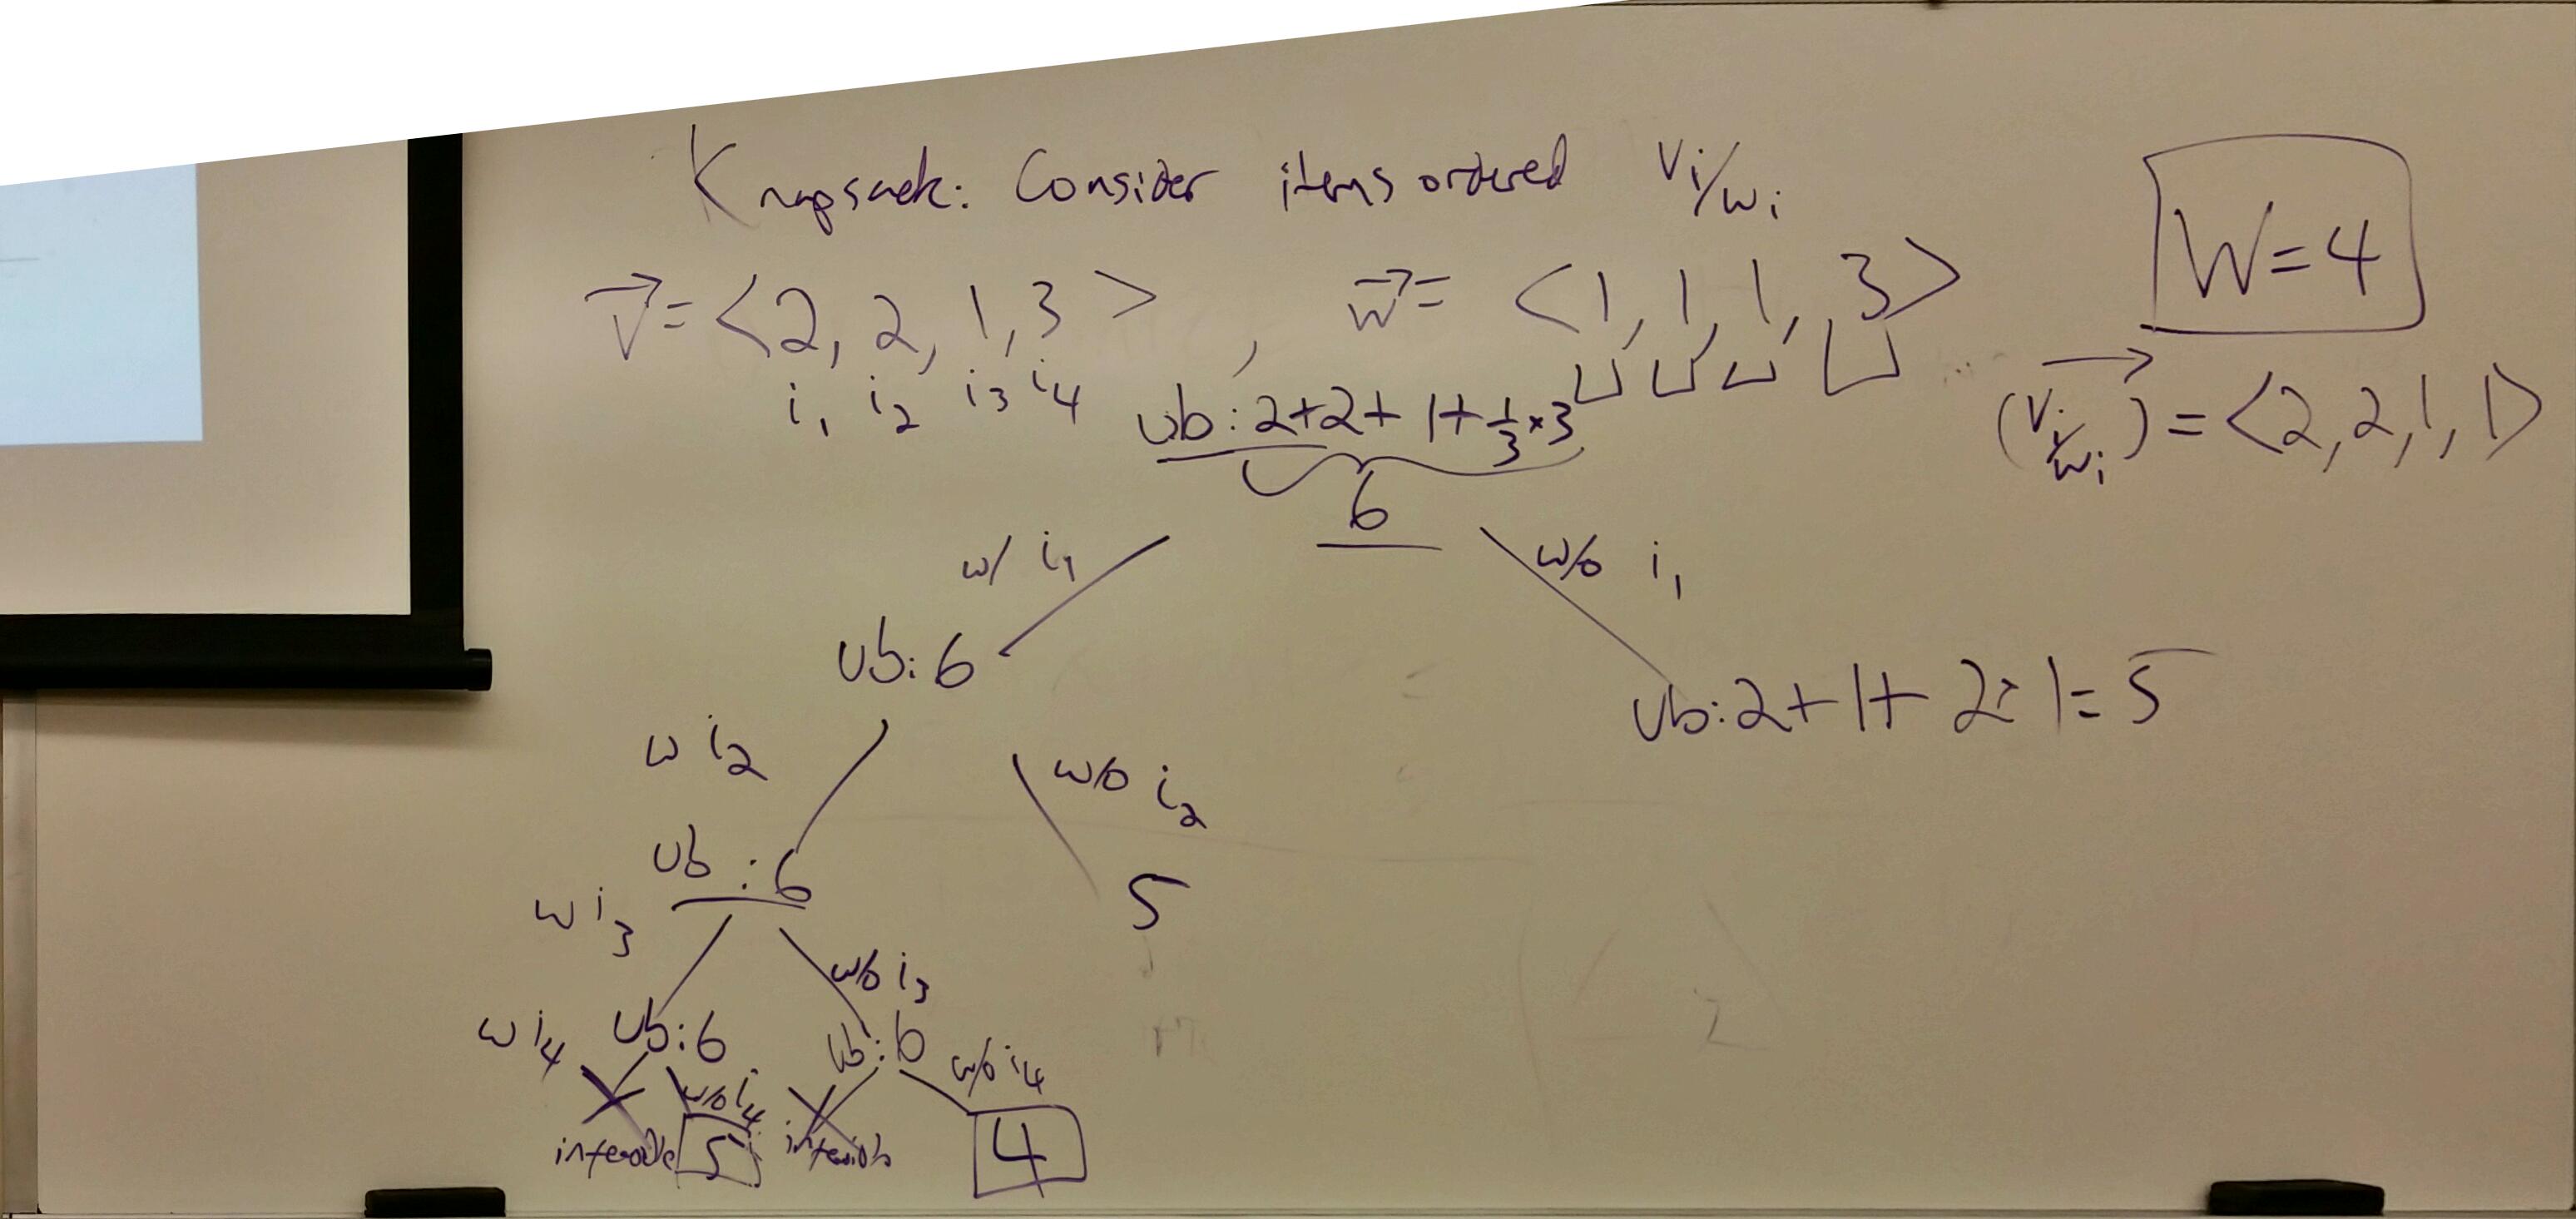 Knapsack: Consider items ordered vi/wi
W=4
v= <2, 2, 1, 3> , w= <1, 1, 1, 3>
i1 i2 i3 i4
(vi/wi) = <2, 2, 1, 1>
ub: 2+2+ 1+ 1/3 × 3
6
w/ i1
w/o i1
ub: 6
ub: 2+ 1+ 2× 1= 5
w i2
w/o i2
ub: 6
5
w i3
w/o i3
ub: 6
ub: 6
w i4
w/o i4
w/o i4
5
4